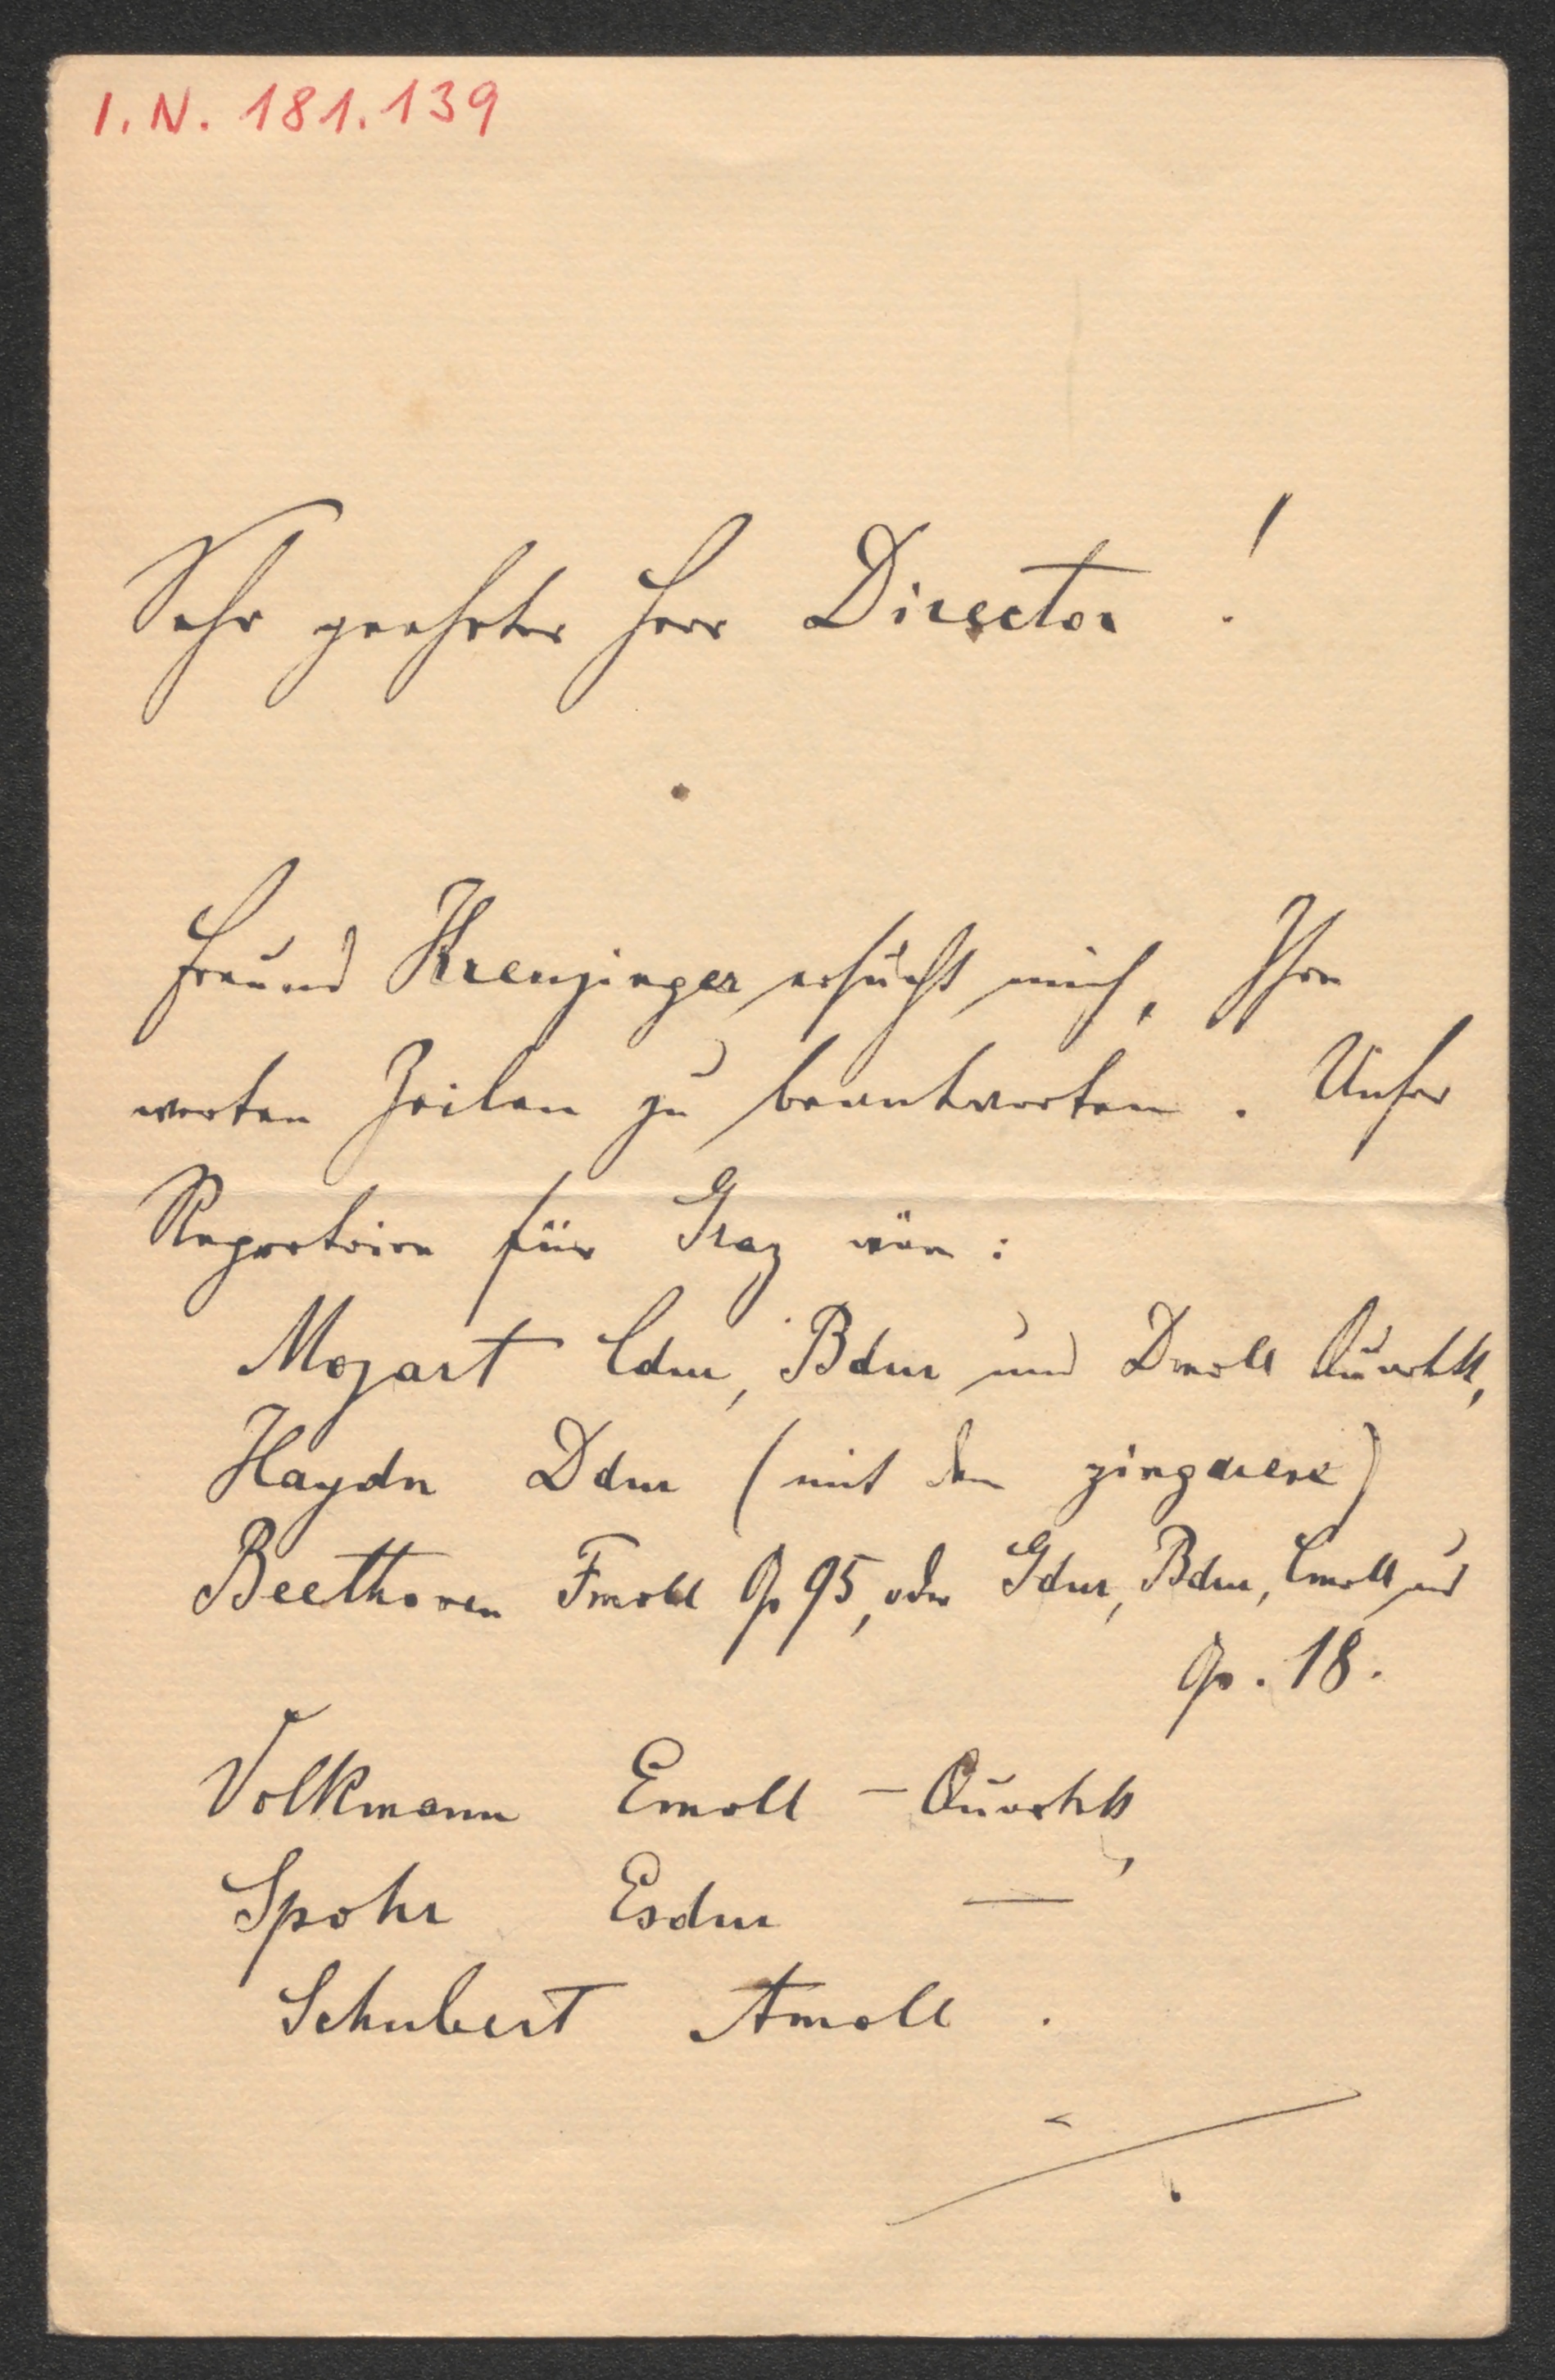 I. N. 181.139
Sehr geehrter Herr Director!
Freund Kreuzinger ersucht mich, Ihre
werten Zeilen zu beantworten. Unser
Repertoire für Graz wäre:
Mozart Cdur, Bdur und Dmoll Quartett,
Haydn Ddur (mit dem zingarese)
Beethoven Fmoll Op 95, oder Gdur, Bdur, Cmoll aus
Op. 18.
Volkmann Emoll - Quartett,
Spohr Esdur —
Schubert Amoll.